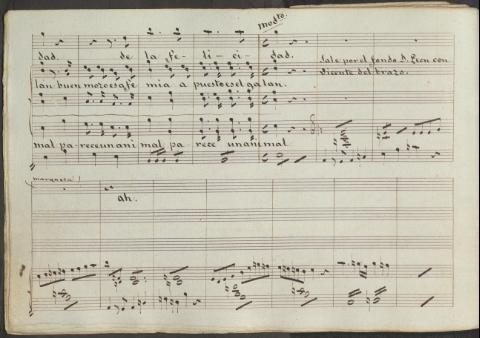 modto.
dad. de la fe-li-ci-dad.
Sale por el fondo D. Leon con
Vicente del brazo.
lan buen mozo es a fé mia a puesto es el galan.
mal pa-rece un ani mal pa rece un ani mal
ah.